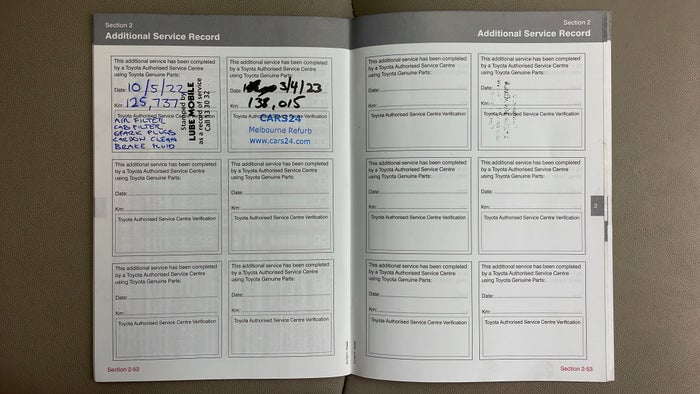 Section 2
Additional Service Record
This additional service has been completed
by a Toyota Authorised Service Centre
using Toyota Genuine Parts:
Date: 10/5/22
Km: 125,737
Toyota Authorised Service Centre
AIR FILTER
CAB FILTER
SPARK PLUGS
CARBON CLEAN
BRAKE FLUID
Stamped by
LUBE MOBILE
as a record of service
Call 13 30 32
This additional service has been completed
by a Toyota Authorised Service Centre
using Toyota Genuine Parts:
Date: 3/4/23
Km: 138,015
Toyota Authorised Service Centre Verification
CARS24
Melbourne Refurb
www.cars24.com
This additional service has been completed
by a Toyota Authorised Service Centre
using Toyota Genuine Parts:
Date:
Km:
Toyota Authorised Service Centre Verification
This additional service has been completed
by a Toyota Authorised Service Centre
using Toyota Genuine Parts:
Date:
Km:
Toyota Authorised Service Centre Verification
This additional service has been completed
by a Toyota Authorised Service Centre
using Toyota Genuine Parts:
Date:
Km:
Toyota Authorised Service Centre Verification
This additional service has been completed
by a Toyota Authorised Service Centre
using Toyota Genuine Parts:
Date:
Km:
Toyota Authorised Service Centre Verification
Section 2-52
Section 2
Additional Service Record
This additional service has been completed
by a Toyota Authorised Service Centre
using Toyota Genuine Parts:
Date:
Km:
Toyota Authorised Service Centre Verification
This additional service has been completed
by a Toyota Authorised Service Centre
using Toyota Genuine Parts:
Date:
Km:
Toyota Authorised Service Centre Verification
This additional service has been completed
by a Toyota Authorised Service Centre
using Toyota Genuine Parts:
Date:
Km:
Toyota Authorised Service Centre Verification
This additional service has been completed
by a Toyota Authorised Service Centre
using Toyota Genuine Parts:
Date:
Km:
Toyota Authorised Service Centre Verification
2
This additional service has been completed
by a Toyota Authorised Service Centre
using Toyota Genuine Parts:
Date:
Km:
Toyota Authorised Service Centre Verification
This additional service has been completed
by a Toyota Authorised Service Centre
using Toyota Genuine Parts:
Date:
Km:
Toyota Authorised Service Centre Verification
Section 2-53